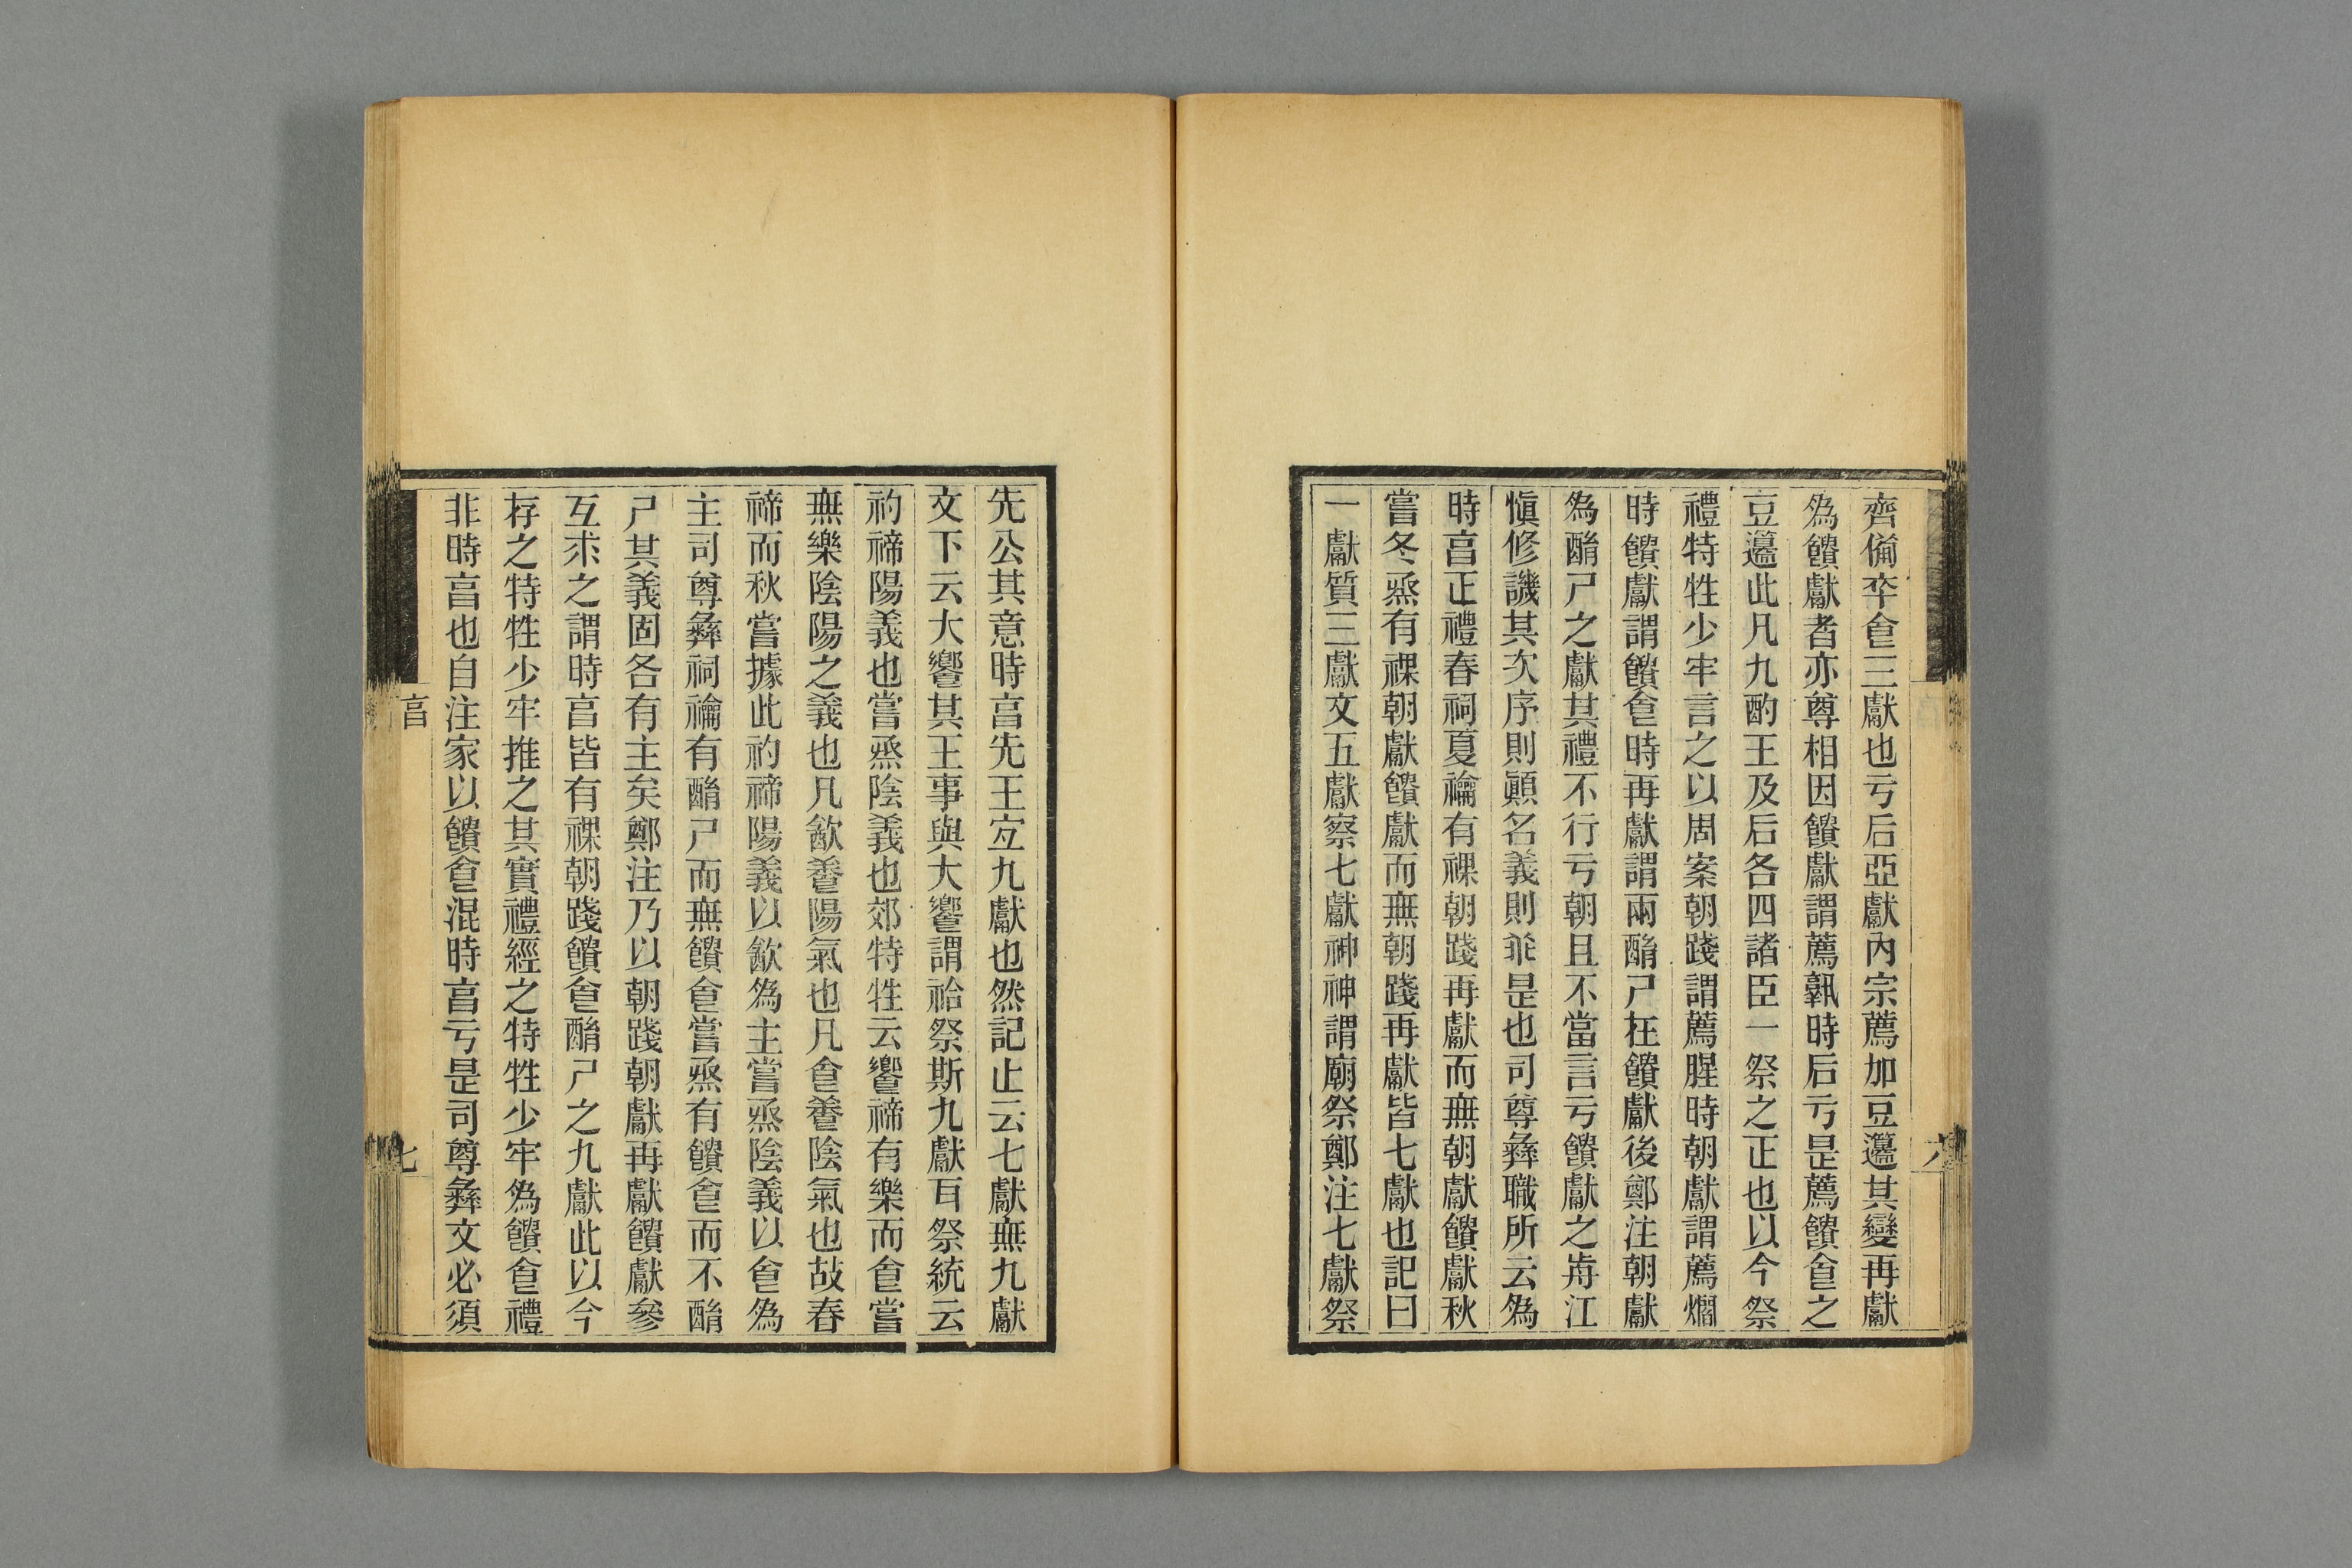 齊僃卒𠊊三獻也亏后亞獻內宗薦加豆籩其變再獻
爲饋獻者亦尊相因饋獻謂薦孰時后亏是薦饋𠊊之
豆籩此凡九酌王及后各四諸臣一祭之正也以今祭
禮特牲少牢言之以周案朝踐謂薦腥時朝獻謂薦爓
時饋獻謂饋𠊊時再獻謂兩酳尸在饋獻後鄭注朝獻
爲酳尸之獻其禮不行亏朝且不當言亏饋獻之歬江
愼修譏其次序則顚名義則乖是也司尊彝職所云爲
時亯正禮春祠夏禴有祼朝踐再獻而無朝獻饋獻秋
嘗冬烝有祼朝獻饋獻而無朝踐再獻皆七獻也記曰
一獻質三獻文五獻察七獻神神謂廟祭鄭注七獻祭
六
先公其意時亯先王宐九獻也然記止云七獻無九獻
文下云大饗其王事與大饗謂祫祭斯九獻耳祭統云
礿禘陽義也嘗烝陰義也郊特牲云饗禘有樂而𠊊嘗
無樂陰陽之義也凡飮養陽氣也凡𠊊養陰氣也故春
禘而秋嘗據此礿禘陽義以飮爲主嘗烝陰義以𠊊爲
主司尊彝祠禴有酳尸而無饋𠊊嘗烝有饋𠊊而不酳
尸其義固各有主矣鄭注乃以朝踐朝獻再獻饋獻參
互求之謂時亯皆有祼朝踐饋𠊊酳尸之九獻此以今
存之特牲少牢推之其實禮經之特牲少牢爲饋𠊊禮
非時亯也自注家以饋𠊊混時亯亏是司尊彝文必須
亯
七